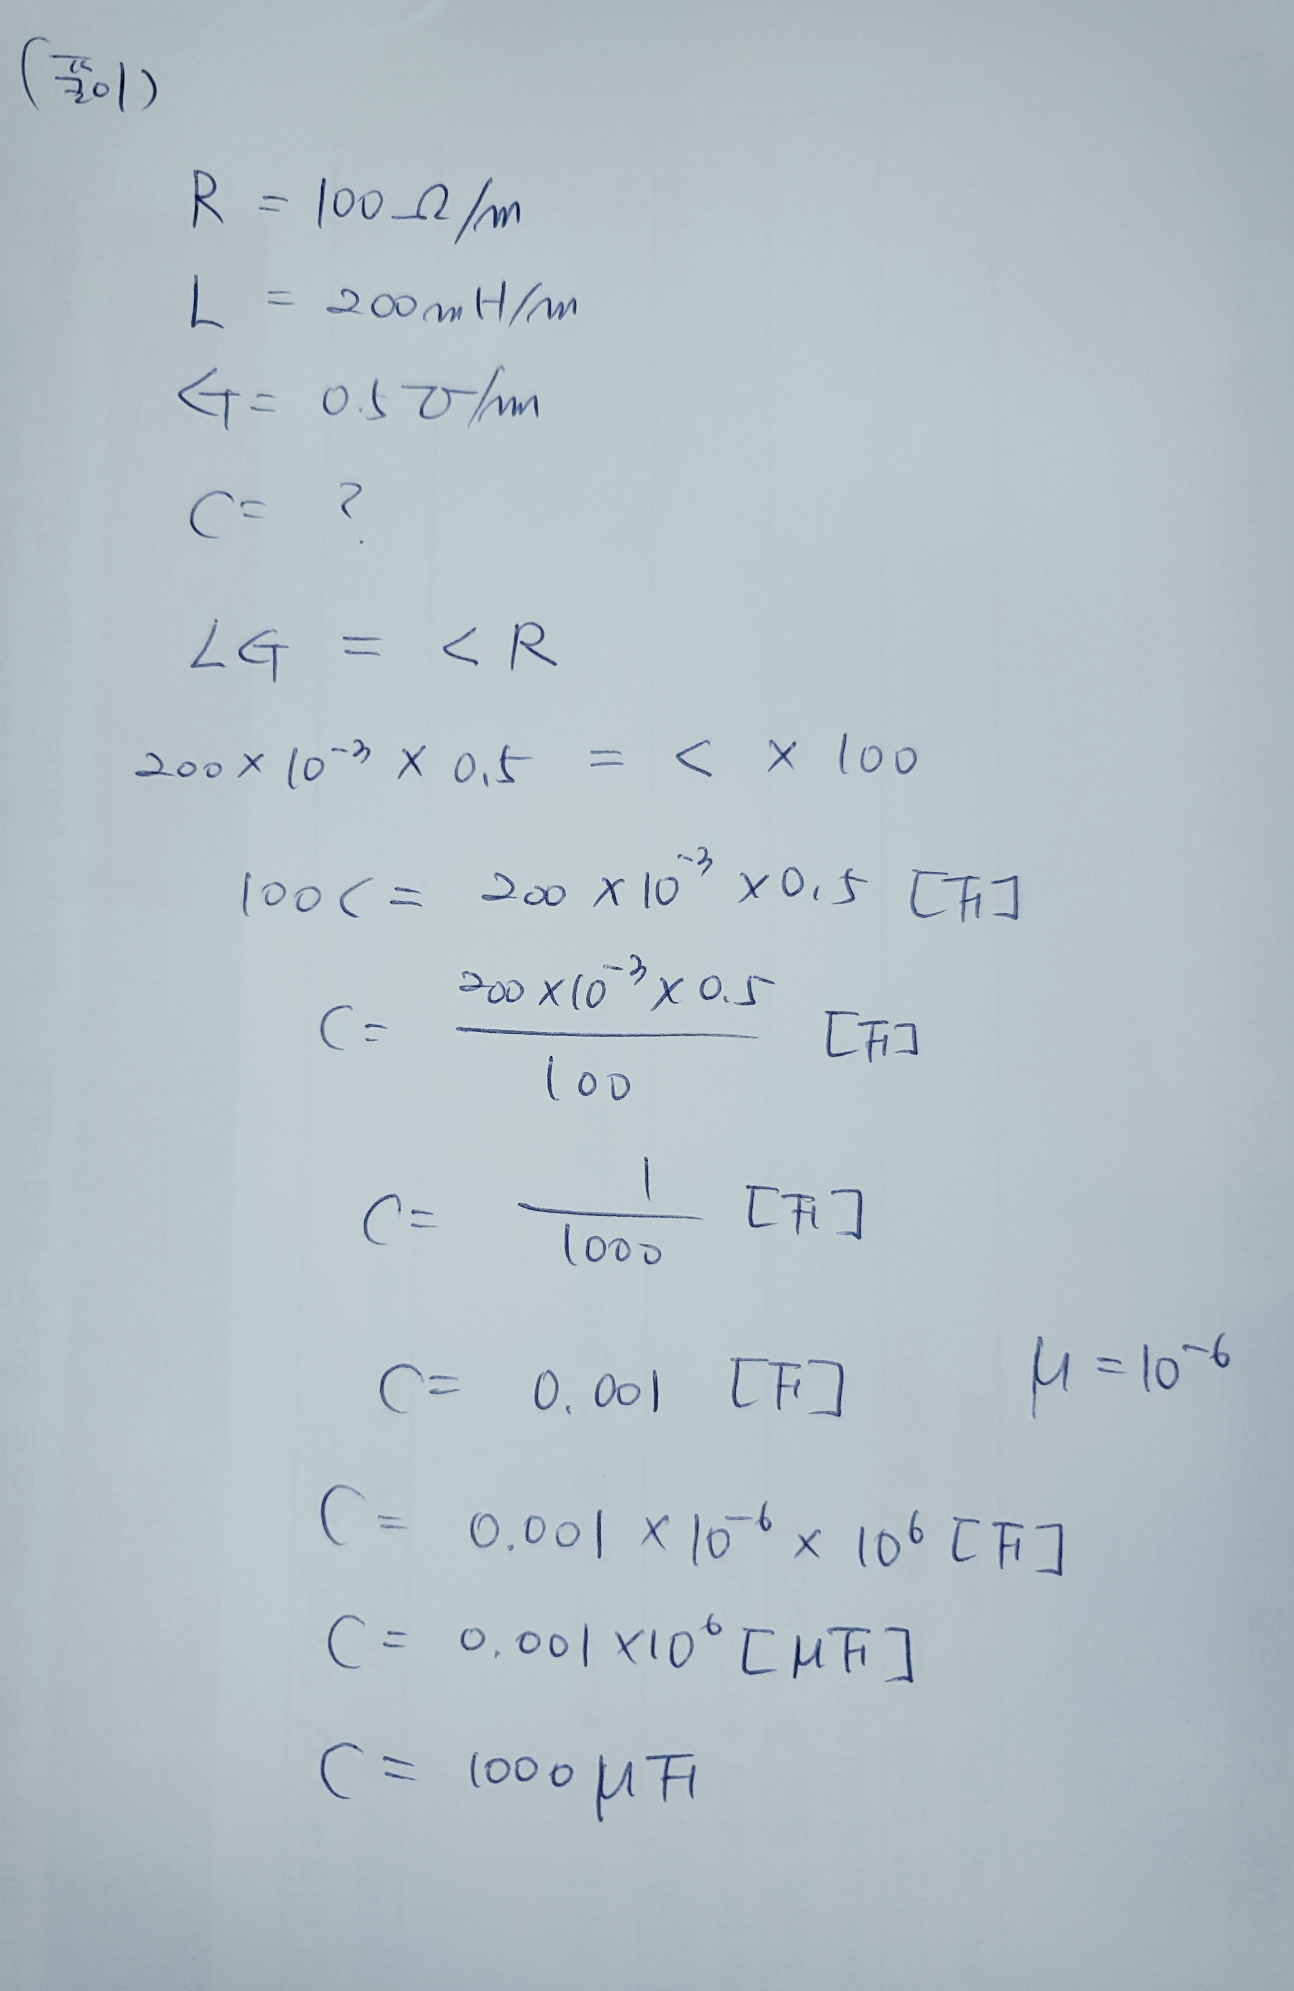 (풀이)
R = 100Ω/m
L = 200mH/m
G = 0.5℧/m
C = ?
LG = CR
200 × 10⁻³ × 0.5 = C × 100
100C = 200 × 10⁻³ × 0.5 [F]
C = 200 × 10⁻³ × 0.5 / 100 [F]
C = 1 / 1000 [F]
C = 0.001 [F] μ = 10⁻⁶
C = 0.001 × 10⁻⁶ × 10⁶ [F]
C = 0.001 × 10⁶ [μF]
C = 1000 μF